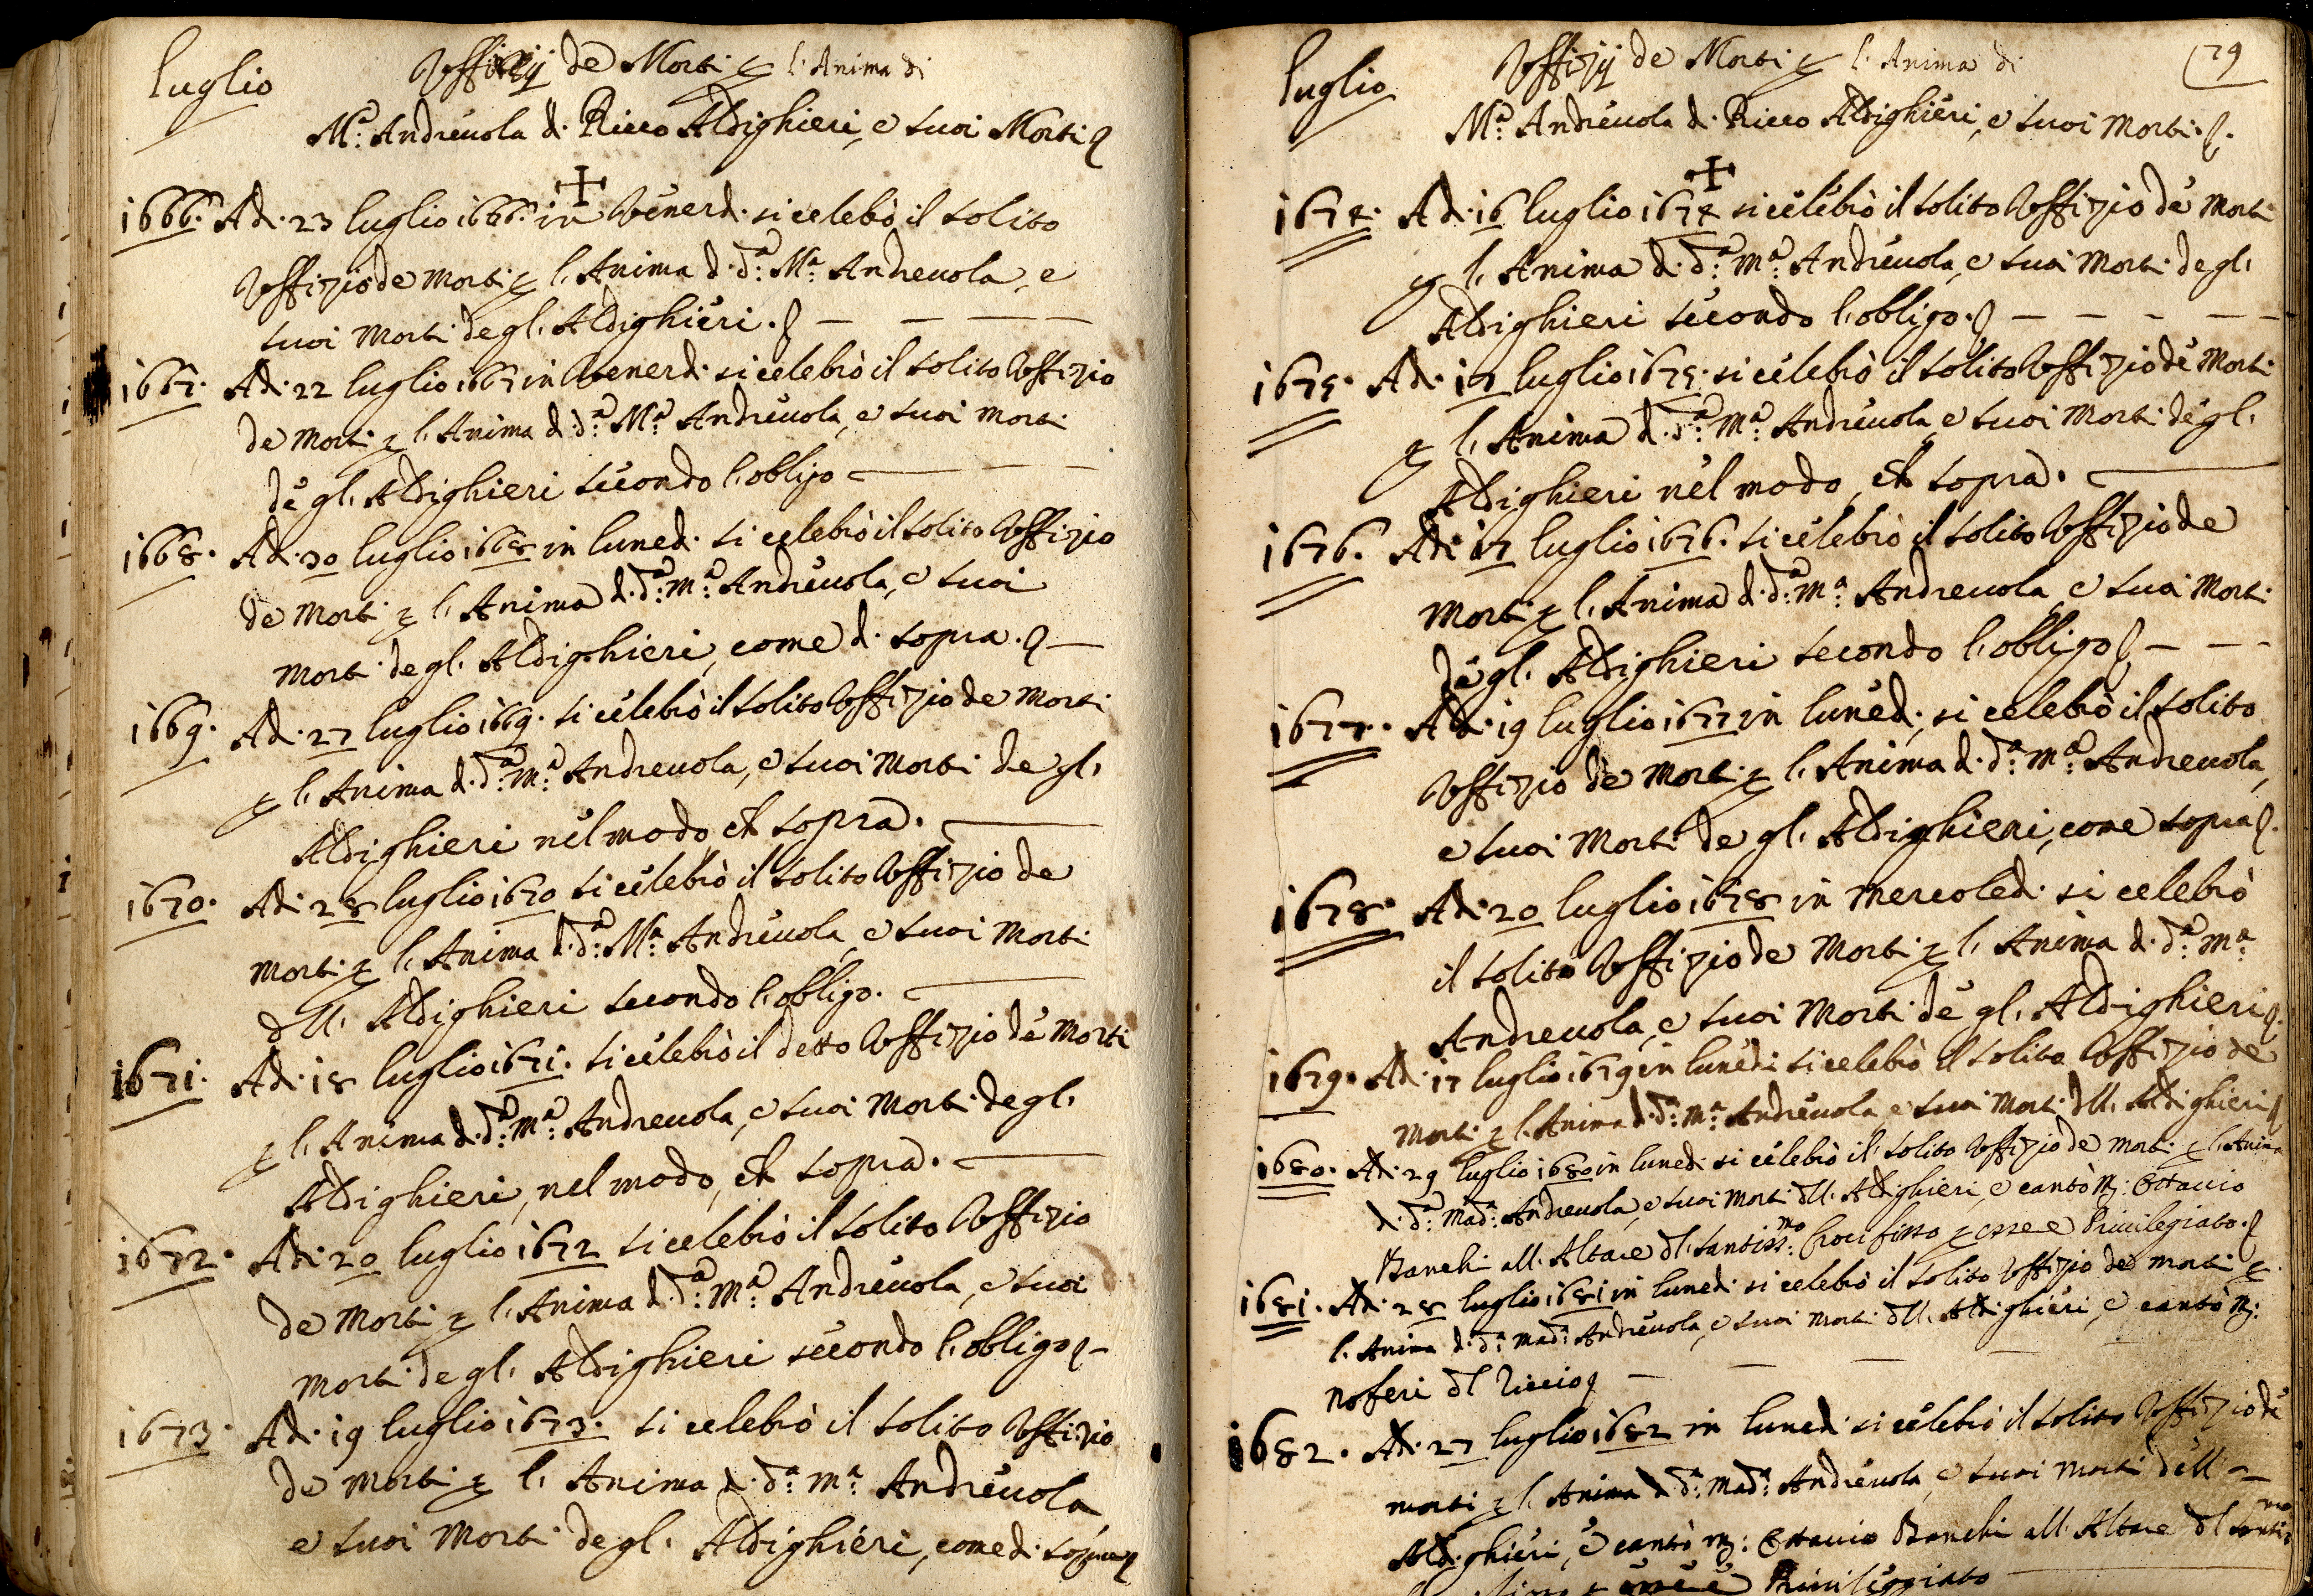 luglio
Uffizij de Morti p l'Anima di
M.ª Andreuola d. Ricco Aldighieri, e suoi Morti
1666. Ad. 23 luglio 1666. in Venerd. si celebrò il solito
Uffizio de Morti p l'Anima d. d.ª M.ª Andreuola, e
suoi Morti de gl. Aldighieri. — — — —
1667. Ad. 22 luglio 1667 in Venerd. si celebrò il solito Uffizio
de Morti p l'Anima d. d.ª M.ª Andreuola, e suoi Morti
de gl. Aldighieri secondo l'obligo — — —
1668. Ad. 30 luglio 1668 in luned. si celebrò il solito Uffizio
de Morti p l'Anima d. d.ª M.ª Andreuola, e suoi
Morti de gl. Aldighieri, come d. sopra. —
1669. Ad. 27 luglio 1669. si celebrò il solito Uffizio de Morti
p l'Anima d. d.ª M.ª Andreuola, e suoi Morti de gl.
Aldighieri nel modo, ch sopra. —
1670. Ad. 28 luglio 1670 si celebrò il solito Uffizio de
Morti p l'Anima d. d.ª M.ª Andreuola, e suoi Morti
dll. Aldighieri secondo l'obligo. —
1671. Ad. 18 luglio 1671. si celebrò il detto Uffizio de Morti
p l'Anima d. d.ª M.ª Andreuola, e suoi Morti de gl.
Aldighieri, nel modo, ch sopra. —
1672. Ad. 20 luglio 1672 si celebrò il solito Uffizio
de Morti p l'Anima d. d.ª M.ª Andreuola, e suoi
Morti de gl. Aldighieri secondo l'obligo —
1673. Ad. 19 luglio 1673. si celebrò il solito Uffizio
de Morti p l'Anima d. d.ª M.ª Andreuola
e suoi Morti de gl. Aldighieri, come d. sopra
luglio
Uffizij de Morti p l'Anima di
79
M.ª Andreuola d. Ricco Aldighieri, e suoi Morti.
1674. Ad. 16 luglio 1674 si celebrò il solito Uffizio de Morti
p l'Anima d. d.ª M.ª Andreuola, e suoi Morti de gl.
Aldighieri secondo l'obligo. — — — — —
1675. Ad. 17 luglio 1675. si celebrò il solito Uffizio de Morti
p l'Anima d. d.ª M.ª Andreuola, e suoi Morti de gl.
Aldighieri nel modo, ch sopra. —
1676. Ad. 17 luglio 1676. si celebrò il solito Uffizio de
Morti p l'Anima d. d.ª M.ª Andreuola, e suoi Morti
de gl. Aldighieri secondo l'obligo — — —
1677. Ad. 19 luglio 1677 in luned. si celebrò il solito
Uffizio de Morti p l'Anima d. d.ª M.ª Andreuola,
e suoi Morti de gl. Aldighieri, come sopra.
1678. Ad. 20 luglio 1678 in Mercoled. si celebrò
il solito Uffizio de Morti p l'Anima d. d.ª M.ª
Andreuola, e suoi Morti de gl. Aldighieri.
1679. Ad. 17 luglio 1679 in lunedi si celebrò il solito Uffizio de
Morti p l'Anima d. d.ª M.ª Andreuola e suoi Morti dll. Aldighieri
1680. Ad. 29 luglio 1680 in luned. si celebrò il solito Uffizio de Morti p l'Anima
d. d.ª Mad.ª Andreuola, e suoi Morti dll. Aldighieri, e cantò M: Ottavio
Banchi all. Altare dl. Santiss.mo Crocifisso p essere Privilegiato.
1681. Ad. 28 luglio 1681 in luned. si celebrò il solito Uffizio de Morti p
l'Anima d. d.ª Mad.ª Andreuola, e suoi Morti dll. Aldighieri, e cantò M:
Noferi dl Riccio — — — — —
1682. Ad. 27 luglio 1682 in luned. si celebrò il solito Uffizio de
morti p l'Anima d. d.ª Mad.ª Andreuola, e suoi Morti dell
Aldighieri, e cantò M: Ottavio Banchi all. Altare dl Santis.mo
p essere Privilegiato